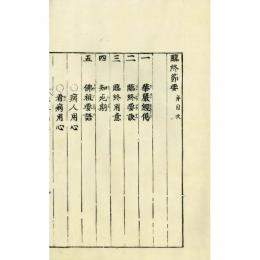 臨終節要 并目次
一 華嚴經偈
二 臨終要訣
三 臨終用意
四 知死期
五 佛祖要語
〇病人用心
〇看病用心